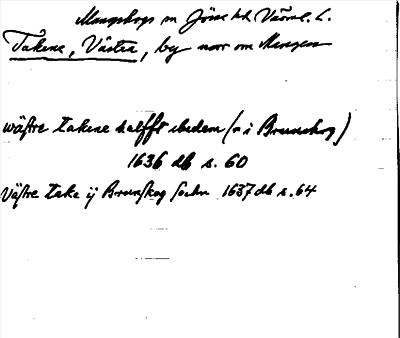 Mangskogs sn Jösse hd Värml. l.
Takene, Västra, by norr om Mangen
wästre takene halfft ibidem (ↄ: i Brunskog)
1636 db s. 60
Västre take ij Brunskog sochn 1637 db s. 64